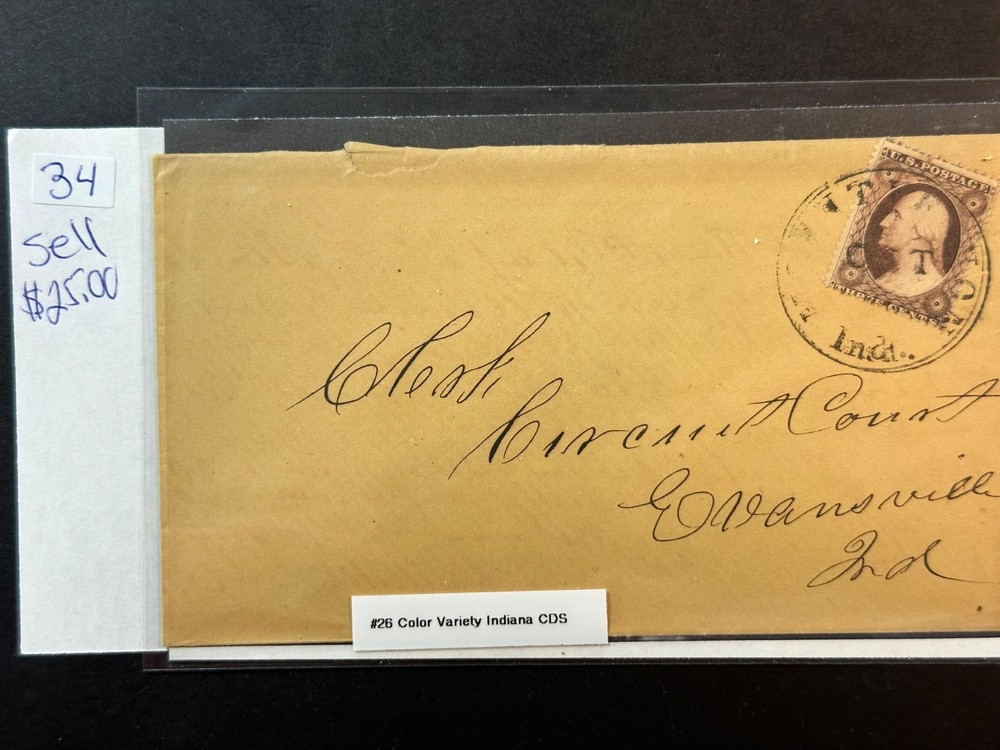 34
Sell
$25.00
U.S. POSTAGE
THREE CENTS
OCT
Ind.
Clerk
Circuit Court
Evansville
Ind
#26 Color Variety Indiana CDS